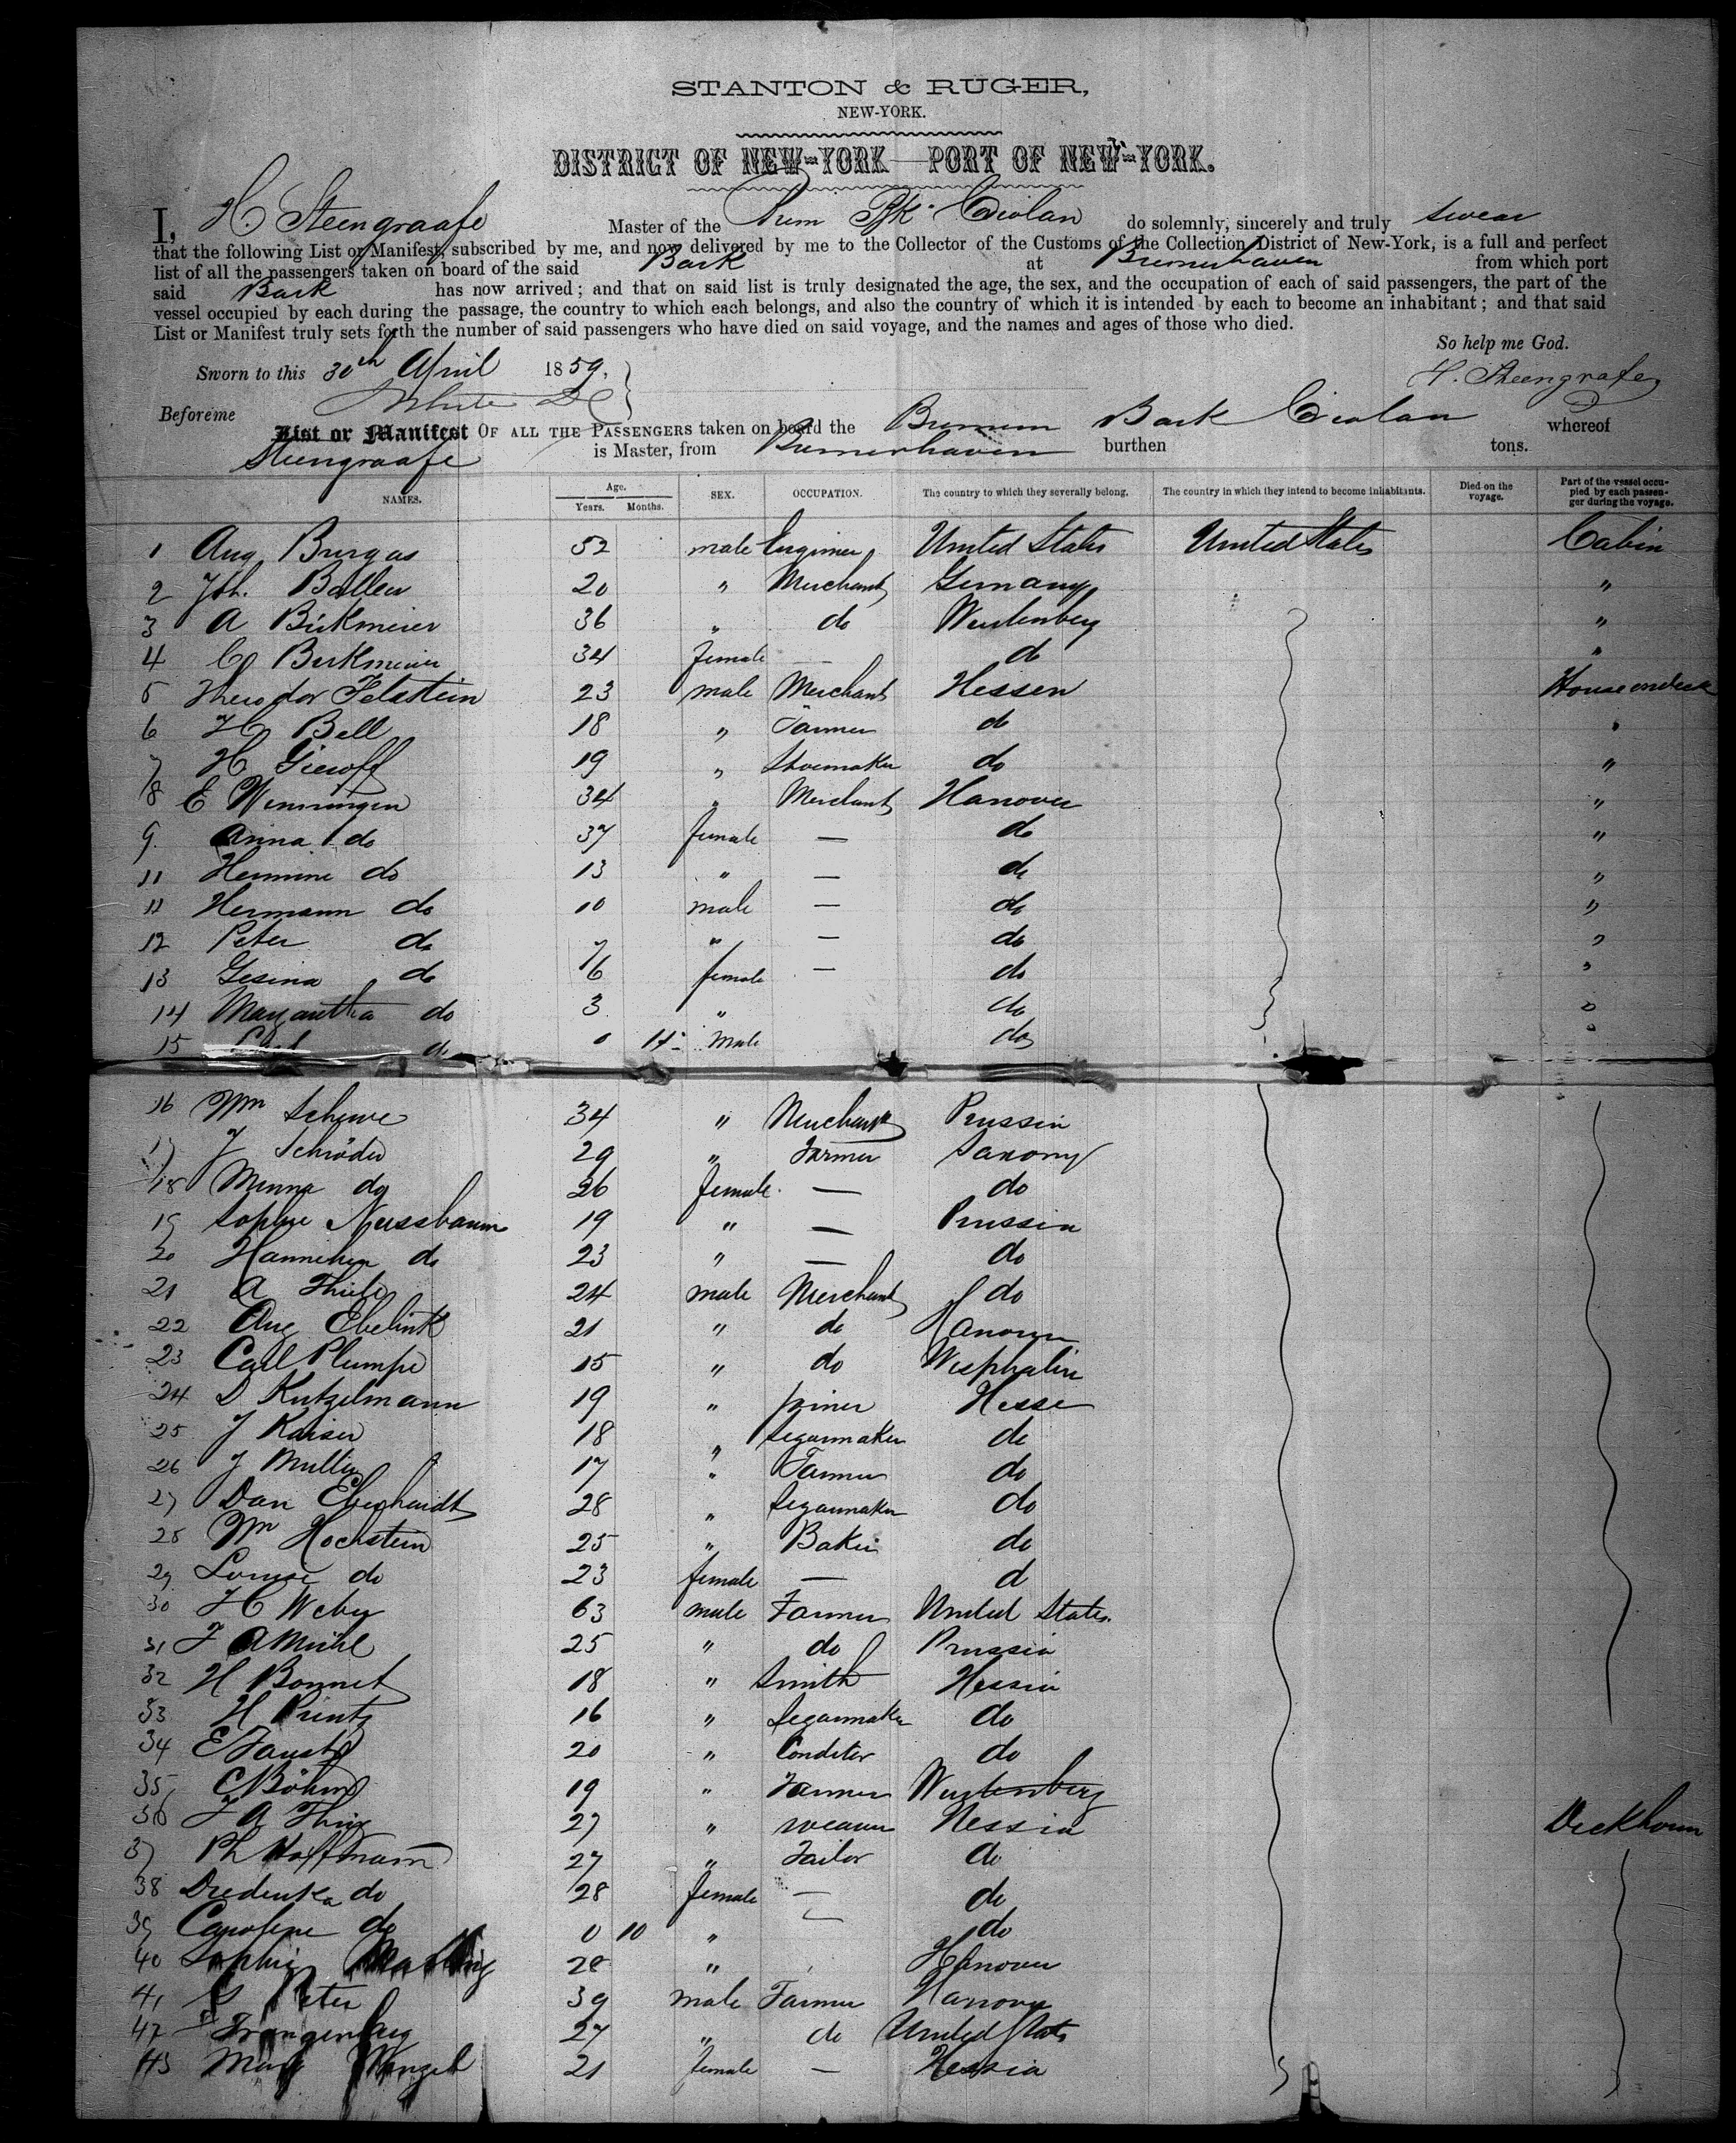 STANTON & RUGER,
NEW-YORK.
DISTRICT OF NEW-YORK—PORT OF NEW-YORK.
I, H. Steengraafe Master of the Brem Bk Ceolan do solemnly, sincerely and truly swear
that the following List or Manifest, subscribed by me, and now delivered by me to the Collector of the Customs of the Collection District of New-York, is a full and perfect
list of all the passengers taken on board of the said Bark at Bremerhaven from which port
said Bark has now arrived; and that on said list is truly designated the age, the sex, and the occupation of each of said passengers, the part of the
vessel occupied by each during the passage, the country to which each belongs, and also the country of which it is intended by each to become an inhabitant; and that said
List or Manifest truly sets forth the number of said passengers who have died on said voyage, and the names and ages of those who died.
So help me God.
Sworn to this 30th April 1859, H. Steengrafe
Before me White
List or Manifest OF ALL THE PASSENGERS taken on board the Bremen Bark Ceolan whereof
Steengraafe is Master, from Bremerhaven burthen tons.
NAMES. Age. Years. Months. SEX. OCCUPATION. The country to which they severally belong. The country in which they intend to become inhabitants. Died on the voyage. Part of the vessel occupied by each passenger during the voyage.
1 Aug Burgas 52 male Engineer United States United States Cabin
2 Joh. Baller 20 " Merchant Germany "
3 A Birkmeier 36 " do Wurtenberg "
4 C Birkmeier 34 female — do "
5 Theodor Felstein 23 male Merchant Hessen House on deck
6 H Bell 18 " Farmer do "
7 H 19 " Shoemaker do "
8 E Wenningen 34 " Merchant Hanover "
9. Anna do 37 female — do "
11 Hermine do 13 " — do "
11 Hermann do 10 male — do "
12 Peter do 7 " — do "
13 Gesina do 6 female — do "
14 Margaretha do 3 " do "
15 do 0 11 Male do "
16 Wm Schewe 34 " Merchant Prussia
17 J Schröder 29 " Farmer Saxony
18 Minna do 26 female — do
19 Sophie Nussbaum 19 " — Prussia
20 Hannchen do 23 " — do
21 A Thiele 24 male Merchant do
22 Aug Ebelink 21 " do Hanover
23 Carl Plumpe 15 " do Wesphalia
24 D Kutzelmann 19 " Joiner Hesse
25 J Kaiser 18 " Segarmaker do
26 J Muller 17 " Farmer do
27 Dan Eberhardt 28 " Segarmaker do
28 Wm Hochstein 25 " Baker do
29 Louise do 23 female — d
30 H Weber 63 male Farmer United States.
31 J A Mühl 25 " do Prussia
32 H Bonnet 18 " Smith Hessia
33 H Printz 16 " Segarmaker do
34 E Faust 20 " Conditor do
35 C Böhm 19 " Farmer Wurtenberg
36 J A 27 " weaver Hessia Deckhouse
37 Ph Hoffmann 27 " Tailor do
38 do 28 female — do
39 Caroline do 0 10 " do
40 Sophie 28 " Hanover
41 Peter 39 male Farmer Hanover
42 27 " do United States
43 Mary Menzel 21 female — Hessia